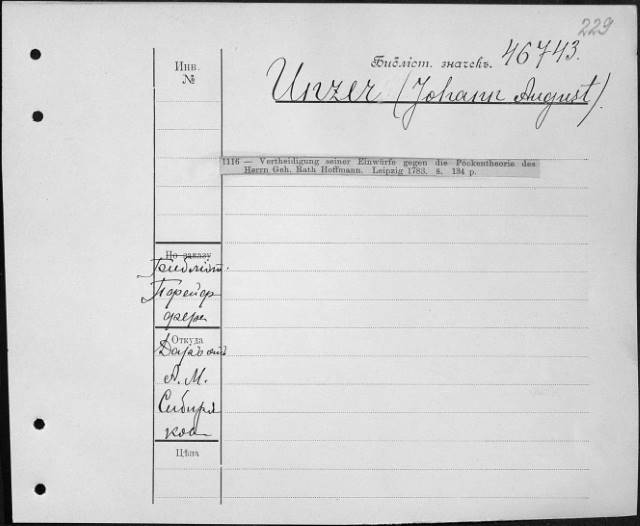 229
Инв.
№
Библіот. значекъ. 46743.
Unzer (Johann August).
1116 — Vertheidigung seiner Einwürfe gegen die Pockentheorie des
Herrn Geh. Rath Hoffmann. Leipzig 1783. 8. 134 p.
По заказу
Библіот.
Пфейф
фера
Откуда
Даръ отъ
А. М.
Сибиря
кова
Цѣна